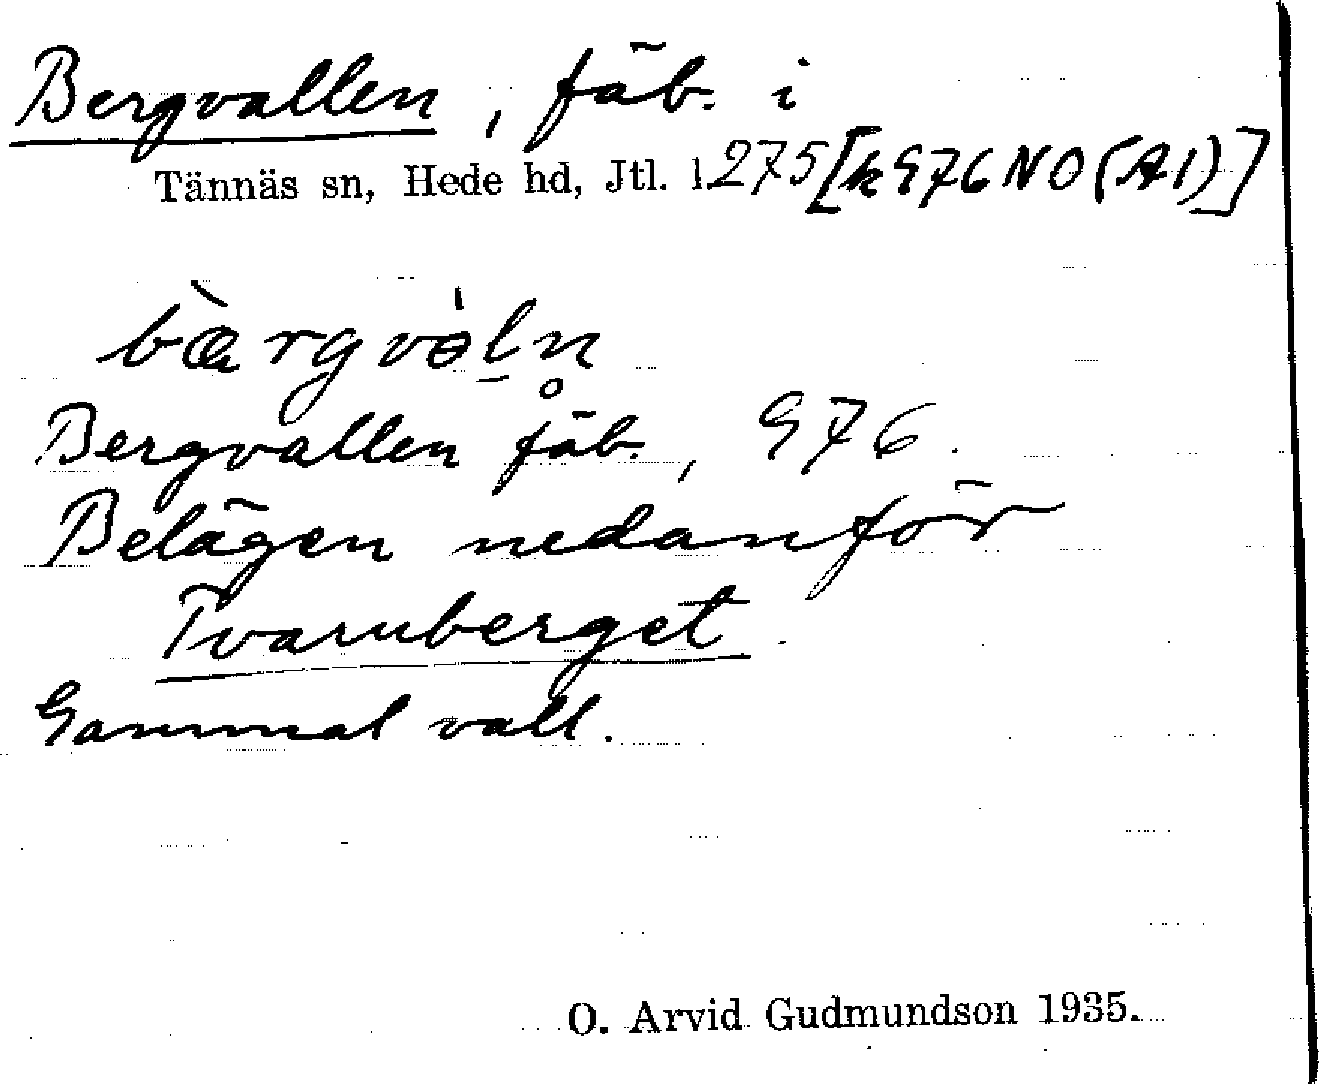 Bergvallen, fäb. i
Tännäs sn, Hede hd, Jtl. 1.275 [k 976 NO (A1)]
bæ̀rgvɵ̀l̠n̥
Bergvallen fäb., 976.
Belägen nedanför
Tvaruberget.
Gammal vall.
O. Arvid Gudmundson 1935.